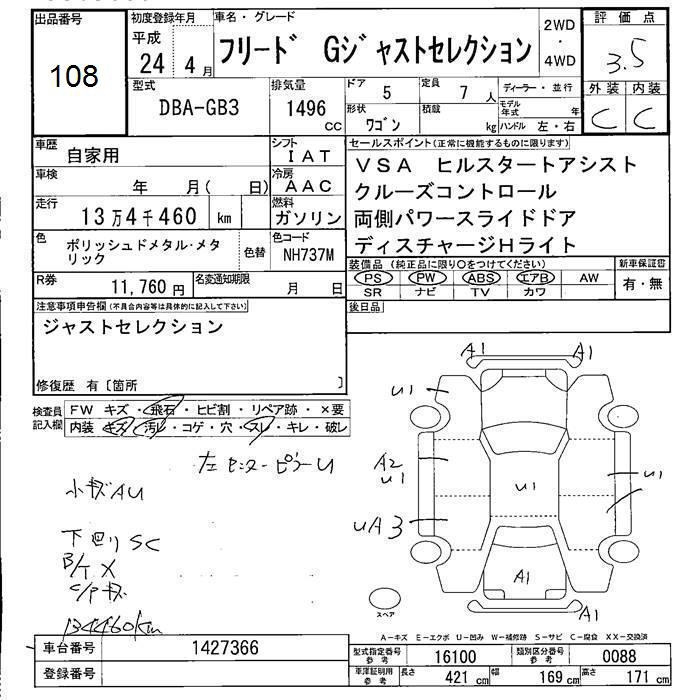 出品番号
108
初度登録年月
平成
24 4月
車名・グレード
フリード Gジャストセレクション
2WD
・
4WD
評価点
3.5
外装 内装
C C
型式
DBA-GB3
排気量
1496
cc
ドア
5
定員
7人
ディーラー・並行
形状
ワゴン
積載
kg
モデル年式 年
ハンドル 左・右
車歴
自家用
シフト
IAT
車検
年 月( 日)
冷房
AAC
走行
13万4千460 km
燃料
ガソリン
色
ポリッシュドメタル・メタリック
色替
色コード
NH737M
R券
11,760円
名変通知期限
月 日
セールスポイント(正常に機能するものに限ります)
VSA ヒルスタートアシスト
クルーズコントロール
両側パワースライドドア
ディスチャージHライト
装備品(純正品に限り○をつけてください)
PS PW ABS エアB AW
SR ナビ TV カワ
新車保証書
有・無
後日品
注意事項申告欄(不具合内容等は具体的に記入して下さい)
ジャストセレクション
修復歴 有〔箇所 〕
検査員記入欄
FW キズ・飛石・ヒビ割・リペア跡・×要
内装 キズ・汚レ・コゲ・穴・スレ・キレ・破レ
左センターピラーU
小キズAU
下回りSC
B/T X
C/Pキズ
134460km
A1 A1
U1
A2
U1
U1
U1
UA3
A1
A1
スペア
A-キズ E-エクボ U-凹み W-補修跡 S-サビ C-腐食 XX-交換済
車台番号
1427366
登録番号
型式指定番号
参考
16100
類別区分番号
参考
0088
車庫証明用
参考
長さ
421 cm
幅
169 cm
高さ
171 cm